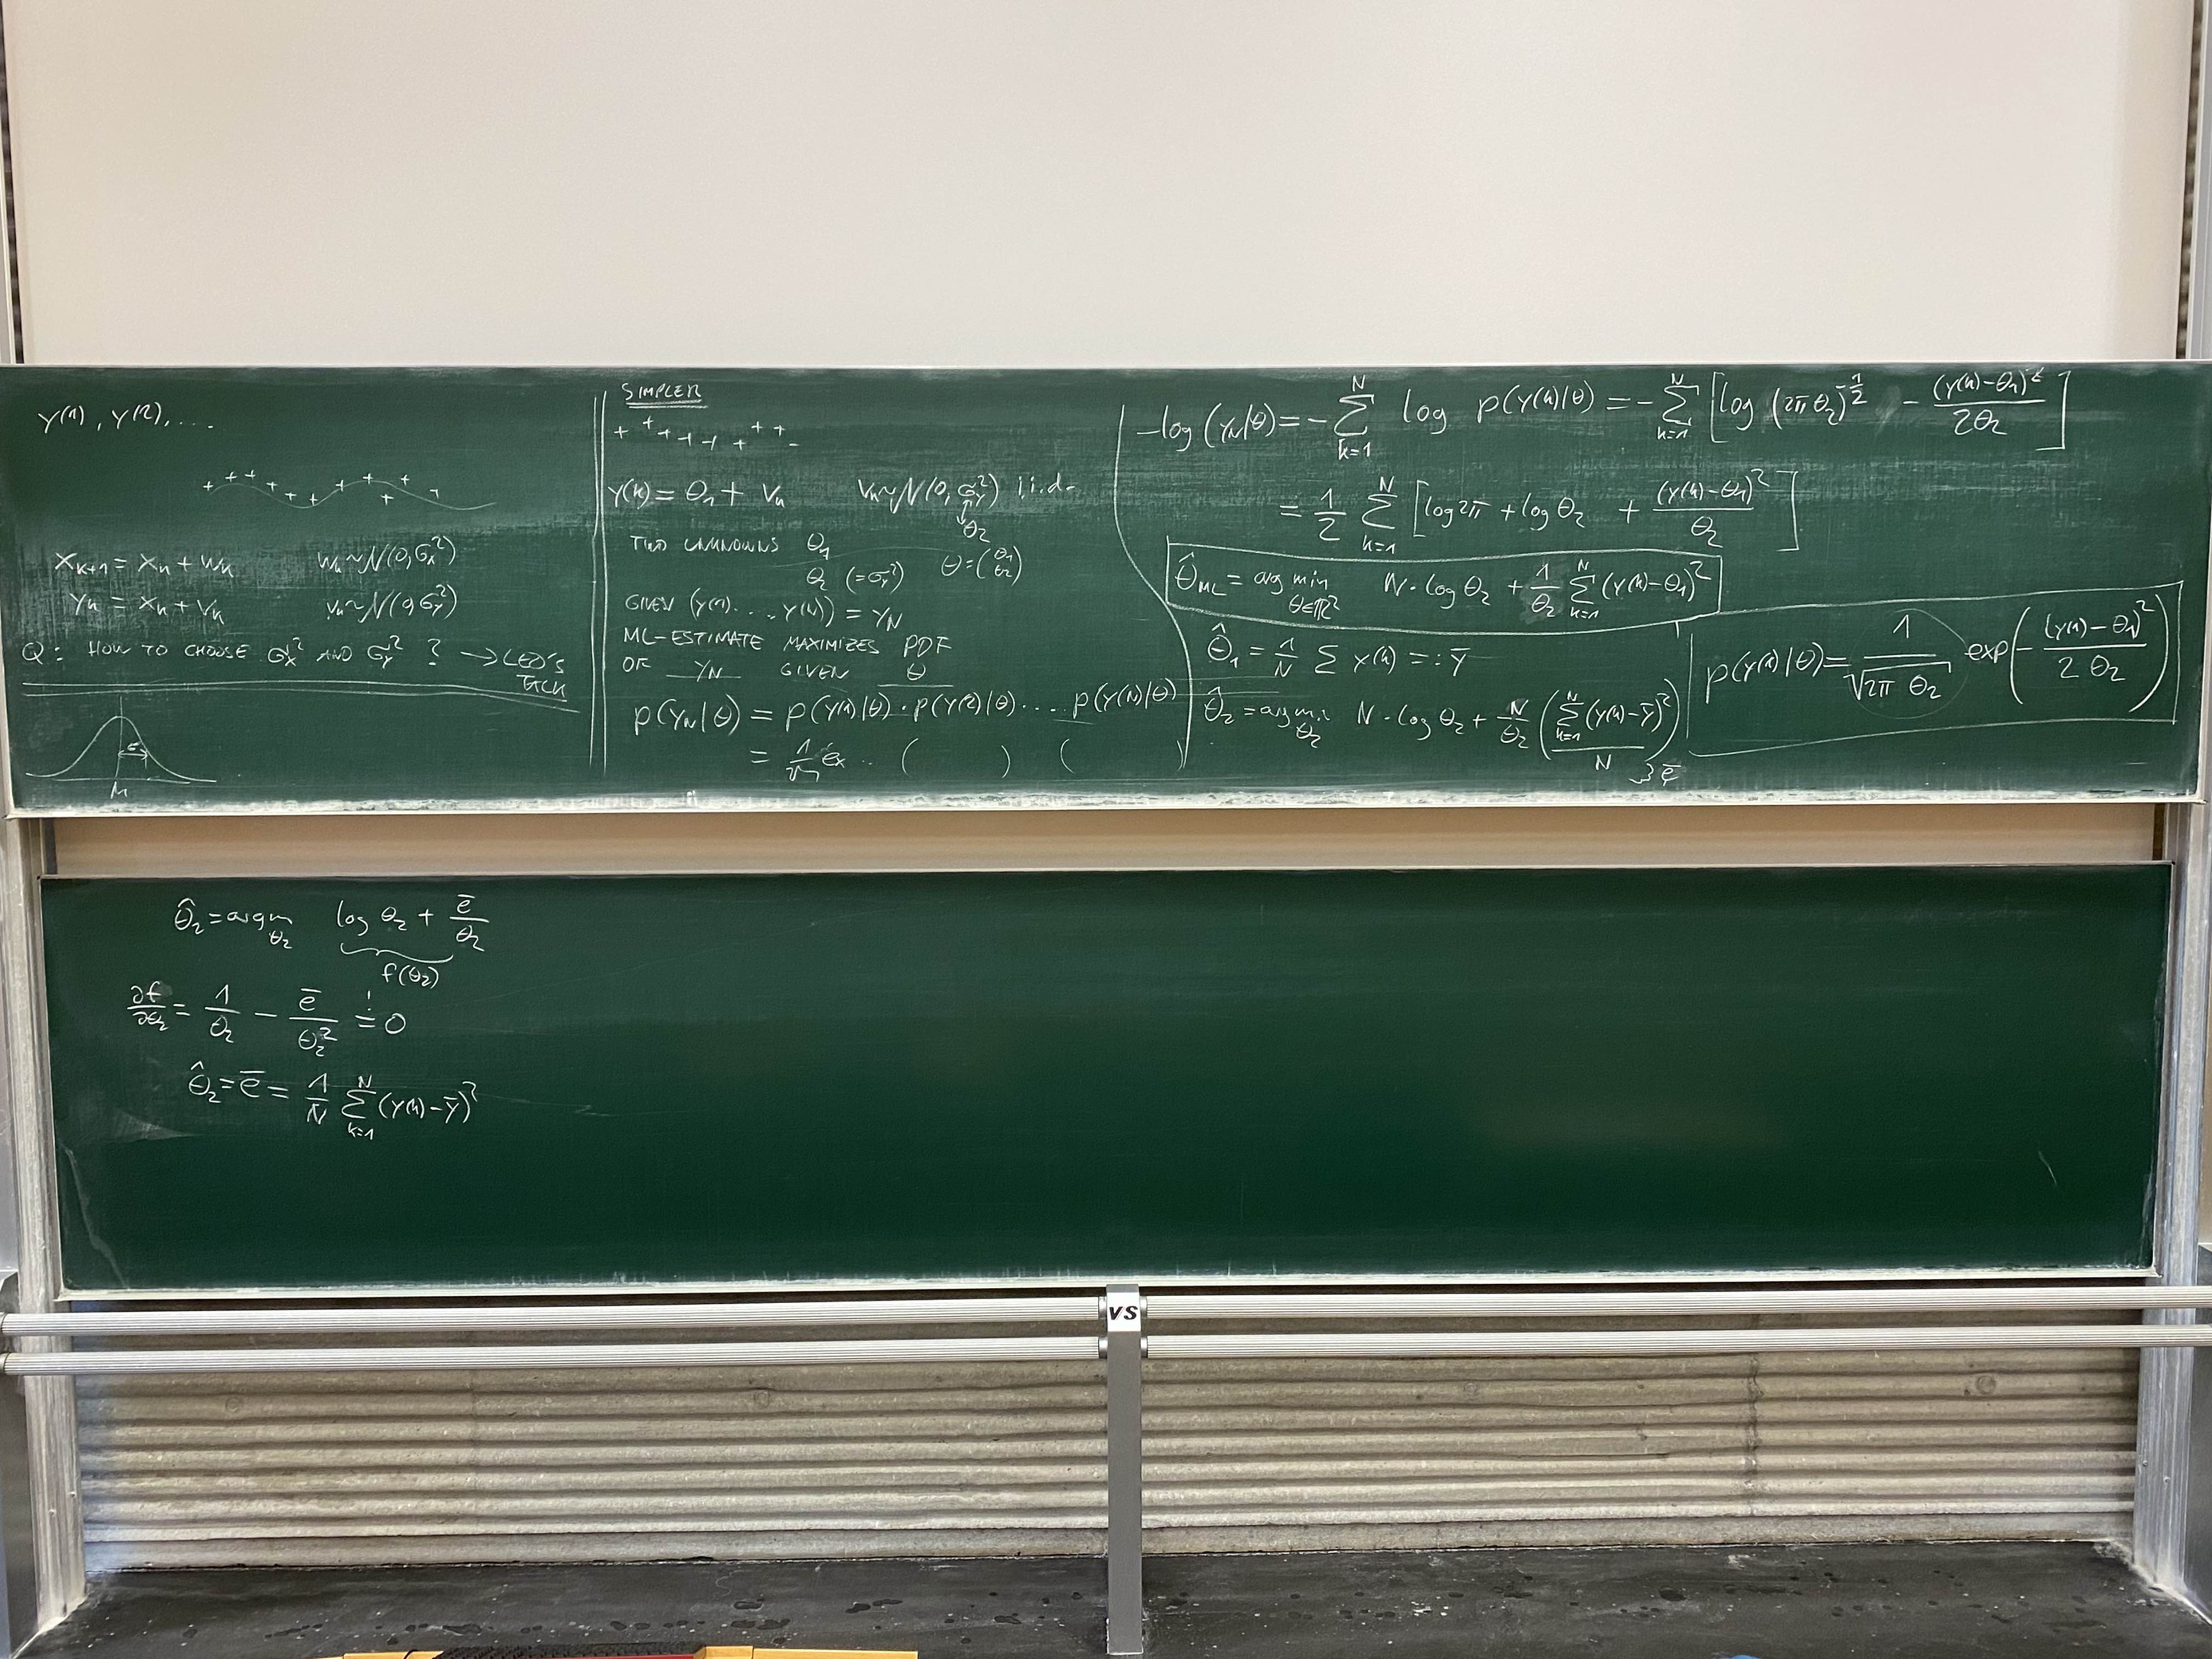 y(1), y(2), ...
x_{k+1} = x_k + w_k    w_k ~ N(0, σ_x²)
y_k = x_k + v_k    v_k ~ N(0, σ_y²)
Q: HOW TO CHOOSE σ_x² AND σ_y² ? → LEO'S
TALK
σ
μ
SIMPLER
y(k) = θ_1 + v_k    v_k ~ N(0, σ_y²) i.i.d.
↓ θ_2
TWO UNKNOWNS θ_1
θ_2 (= σ_y²)    θ = (θ_1 θ_2)
GIVEN (y(1), ..., y(N)) = y_N
ML-ESTIMATE MAXIMIZES PDF
OF y_N GIVEN θ
p(y_N|θ) = p(y(1)|θ) · p(y(2)|θ) · ... p(y(N)|θ)
= 1/√ ex .. (    ) (    )
-log (y_N|θ) = -∑_{k=1}^{N} log p(y(k)|θ) = -∑_{k=1}^{N} [log (2πθ_2)^{-1/2} - (y(k)-θ_1)²/(2θ_2)]
= 1/2 ∑_{k=1}^{N} [log 2π + log θ_2 + (y(k)-θ_1)²/θ_2]
θ̂_ML = arg min_{θ∈ℝ²} N · log θ_2 + 1/θ_2 ∑_{k=1}^{N} (y(k)-θ_1)²
θ̂_1 = 1/N ∑ y(k) =: ȳ
θ̂_2 = arg min_{θ_2} N · log θ_2 + N/θ_2 (∑_{k=1}^{N} (y(k)-ȳ)² / N)
ē
p(y(k)|θ) = 1/√(2π θ_2) exp(-(y(k)-θ_1)²/(2 θ_2))
θ̂_2 = arg m_{θ_2} log θ_2 + ē/θ_2
f(θ_2)
∂f/∂θ_2 = 1/θ_2 - ē/θ_2² =! 0
θ̂_2 = ē = 1/N ∑_{k=1}^{N} (y(k)-ȳ)²
VS